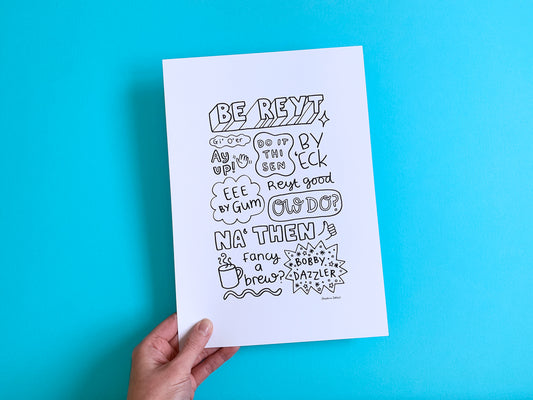 BE REYT
Gi' O'er
Ay
up!
DO IT
THI
SEN
BY
'ECK
EEE
BY Gum
Reyt good
OW DO?
NA' THEN
Fancy
a
brew?
BOBBY
DAZZLER